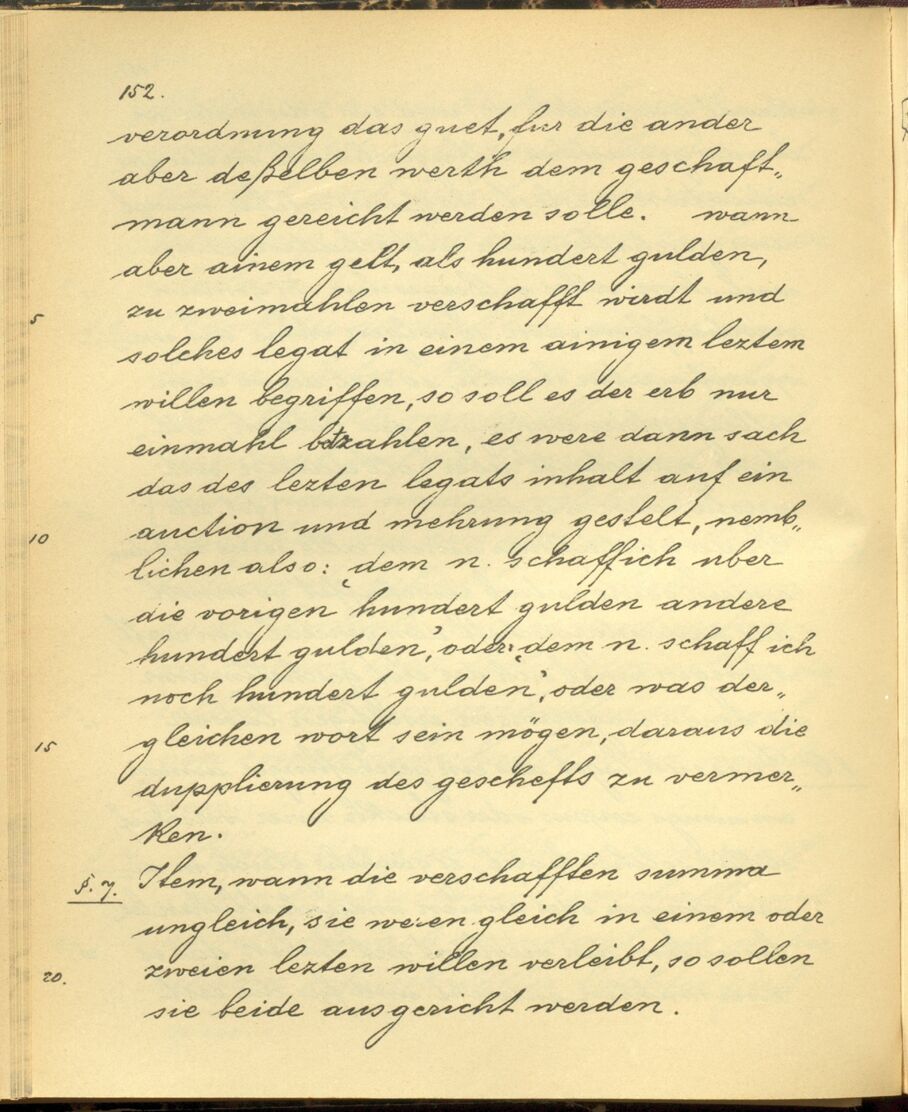 152.
verordnung das guet, fur die ander
aber deßelben werth dem geschaft„
mann gereicht werden solle. wann
aber ainem gelt, als hundert gulden,
5 zu zweimahlen verschafft wirdt und
solches legat in einem ainigem leztem
willen begriffen, so soll es der erb nur
einmahl betzahlen, es were dann sach
das des lezten legats inhalt auf ein
10 auction und mehrung gestelt, nemb„
lichen also: ‚dem n. schaff ich uber
die vorigen hundert gulden andere
hundert gulden’, oder ‚dem n. schaff ich
noch hundert gulden’, oder was der„
15 gleichen wort sein mögen, daraus die
dupplierung des gescheffts zu vermer„
ken.
§. 7. Item, wann die verschafften summa
ungleich, sie weren gleich in einem oder
20. zweien lezten willen verleibt, so sollen
sie beide ausgericht werden.